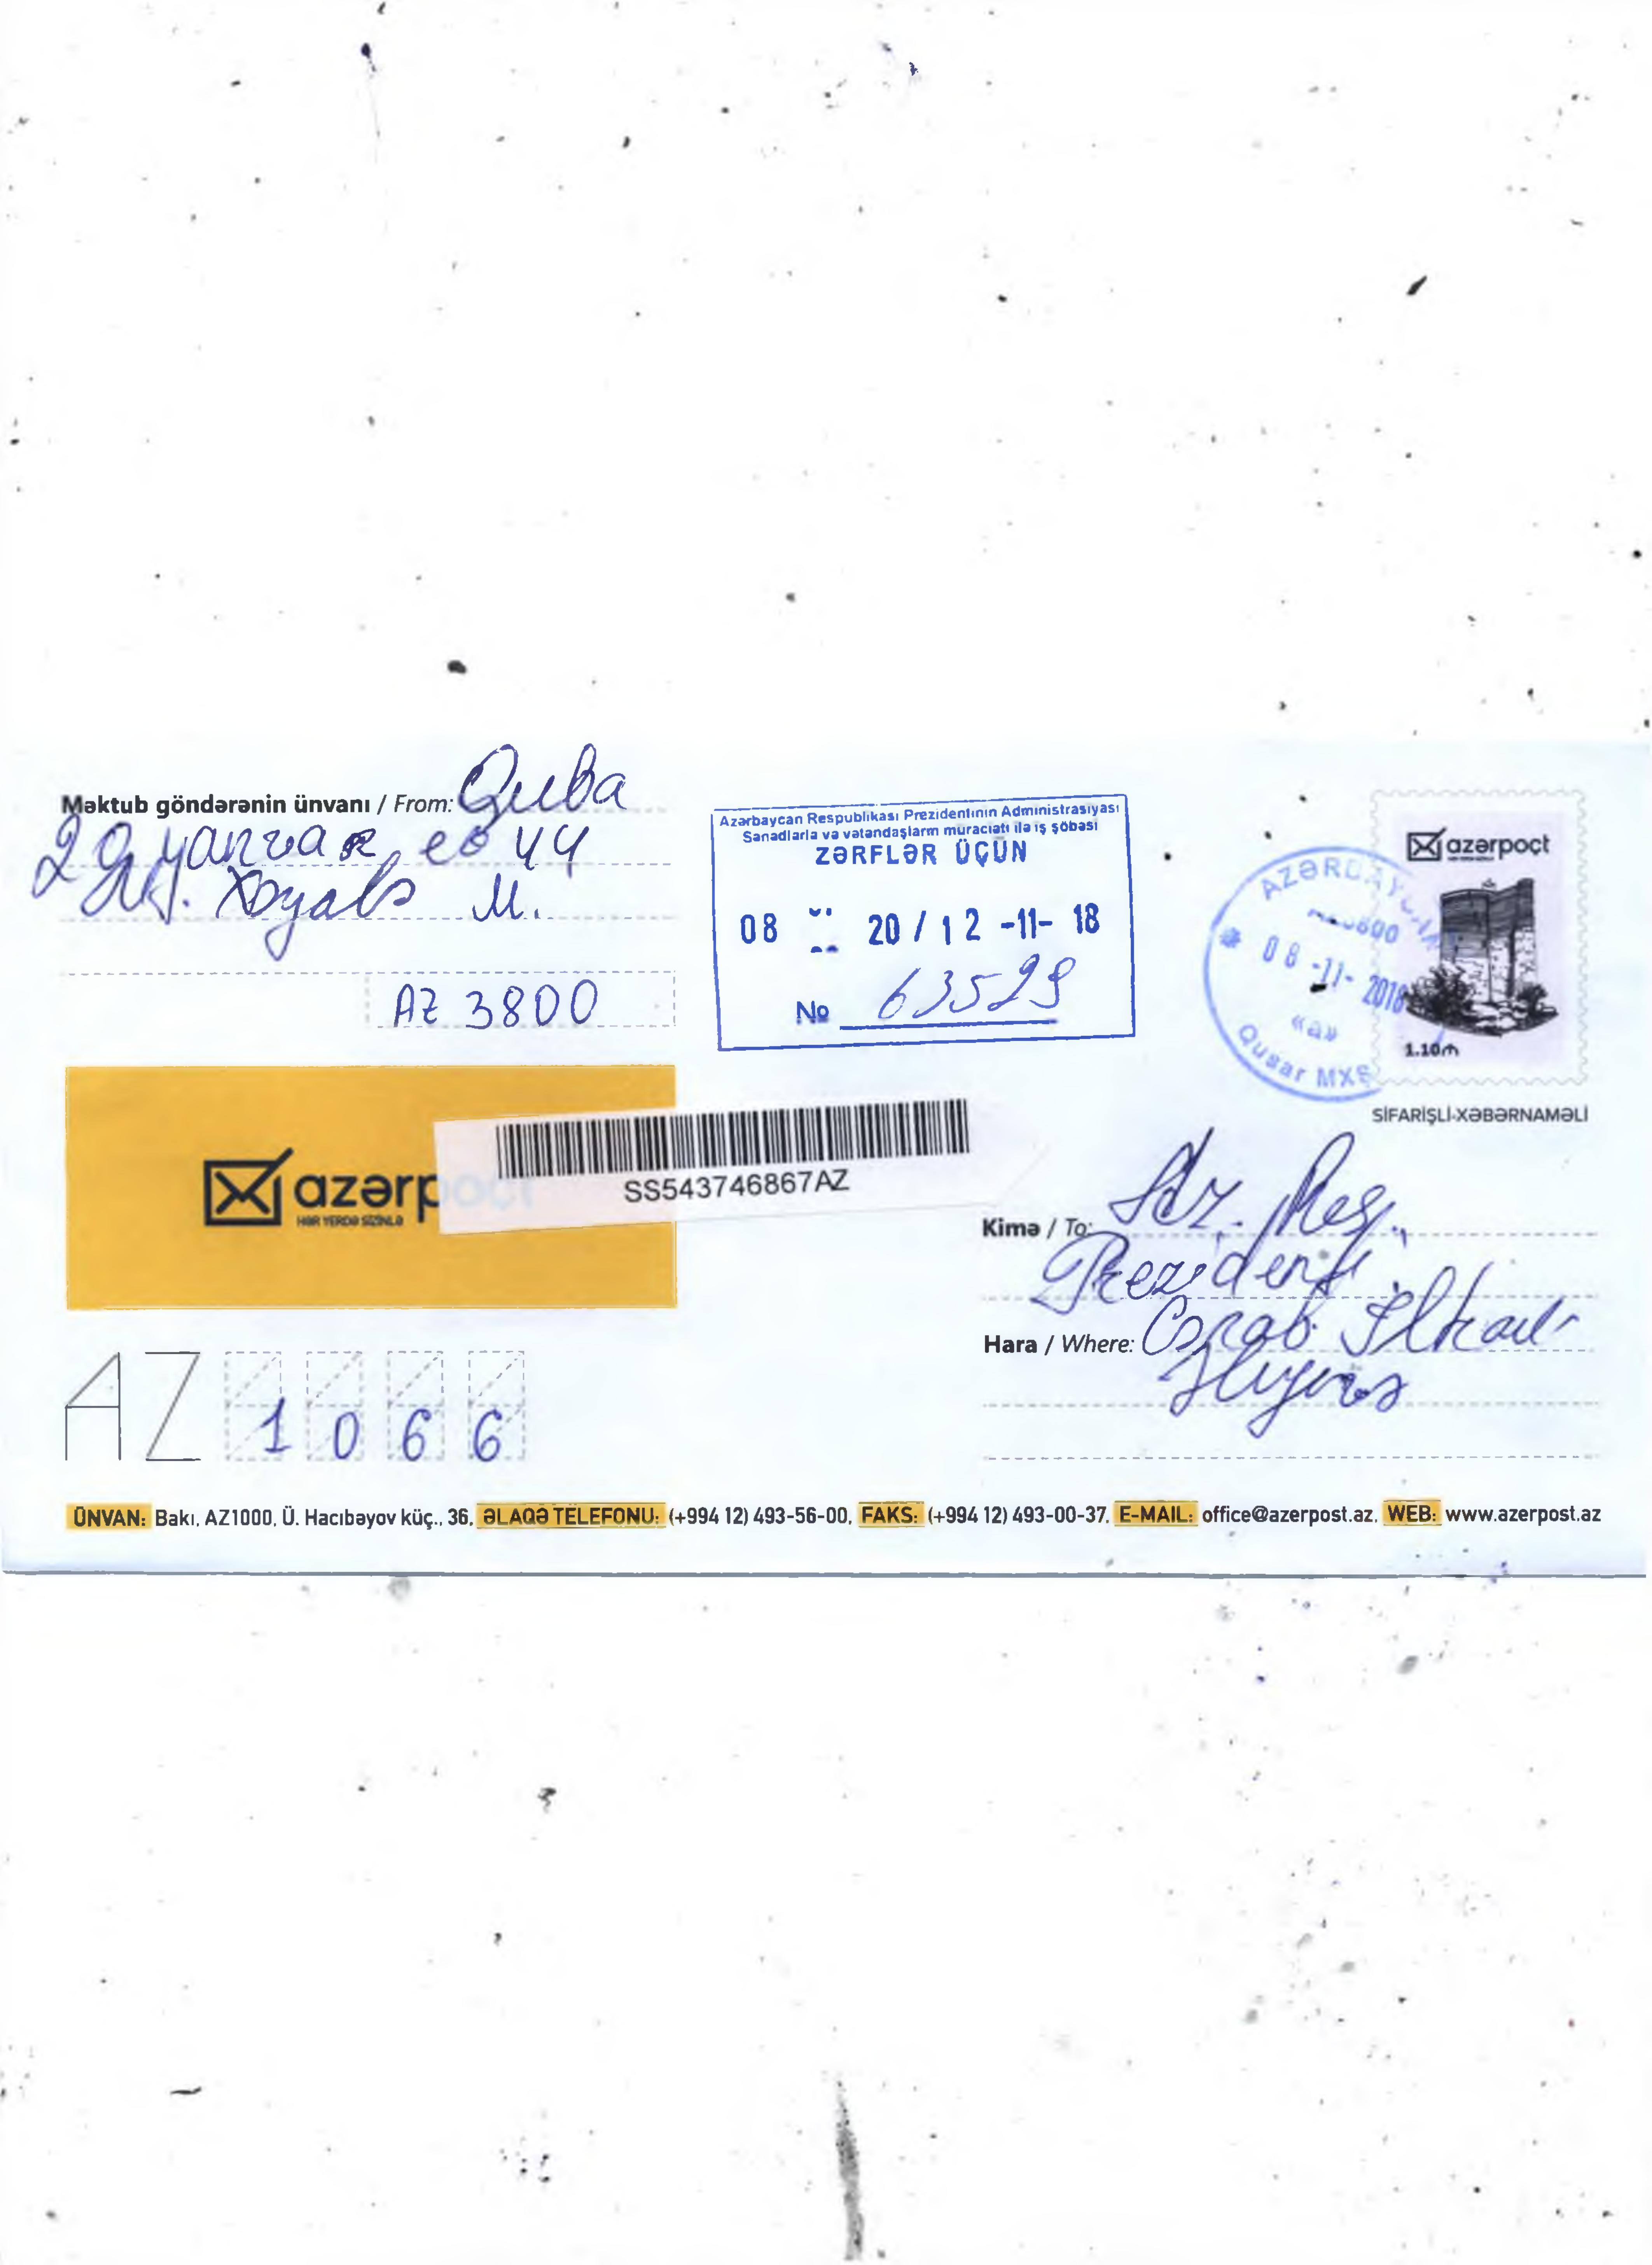 Məktub göndərənin ünvanı / From: Quba
20 yanvar, ev 44
Xəyalə M.
AZ 3800
Azərbaycan Respublikası Prezidentinin Administrasiyası
Sənədlərlə və vətəndaşların müraciəti ilə iş şöbəsi
ZƏRFLƏR ÜÇÜN
08 20 / 12 -11- 18
№ 63529
08 -11- 2018
«a»
Qusar MXŞ
azərpoçt
1.10₼
SİFARİŞLİ-XƏBƏRNAMƏLİ
azərpoçt
HƏR YERDƏ SİZİNLƏ
SS543746867AZ
Kimə / To: Az. Res.
Prezidenti
Hara / Where: Cənab İlham
Əliyevə
AZ 1066
ÜNVAN: Bakı, AZ1000, Ü. Hacıbəyov küç., 36, ƏLAQƏ TELEFONU: (+994 12) 493-56-00, FAKS: (+994 12) 493-00-37, E-MAIL: office@azerpost.az, WEB: www.azerpost.az